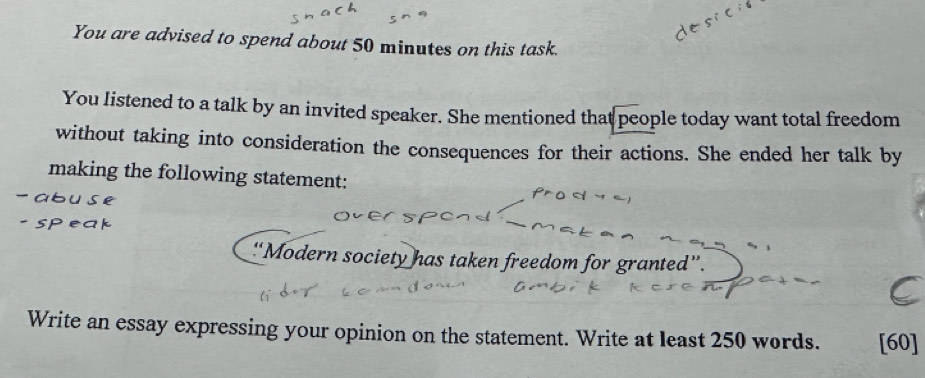 snach sna
You are advised to spend about 50 minutes on this task.
You listened to a talk by an invited speaker. She mentioned that people today want total freedom
without taking into consideration the consequences for their actions. She ended her talk by
making the following statement:
- abuse
- speak
overspend
makan
"Modern society has taken freedom for granted".
ambik
C
Write an essay expressing your opinion on the statement. Write at least 250 words. [60]